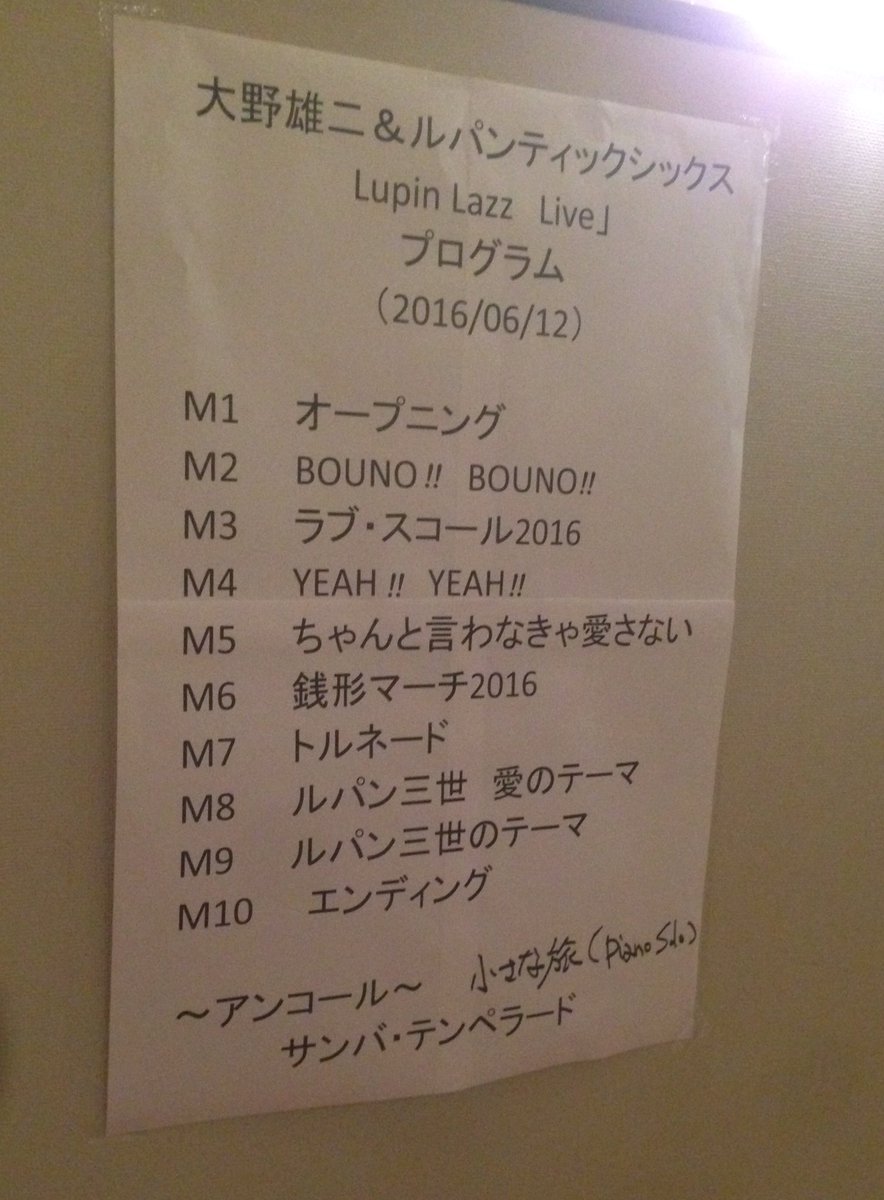 大野雄二＆ルパンティックシックス
Lupin Lazz　Live」
プログラム
（2016/06/12）
M1　オープニング
M2　BOUNO!!　BOUNO!!
M3　ラブ・スコール2016
M4　YEAH!!　YEAH!!
M5　ちゃんと言わなきゃ愛さない
M6　銭形マーチ2016
M7　トルネード
M8　ルパン三世　愛のテーマ
M9　ルパン三世のテーマ
M10　エンディング
～アンコール～　小さな旅（piano solo）
サンバ・テンペラード